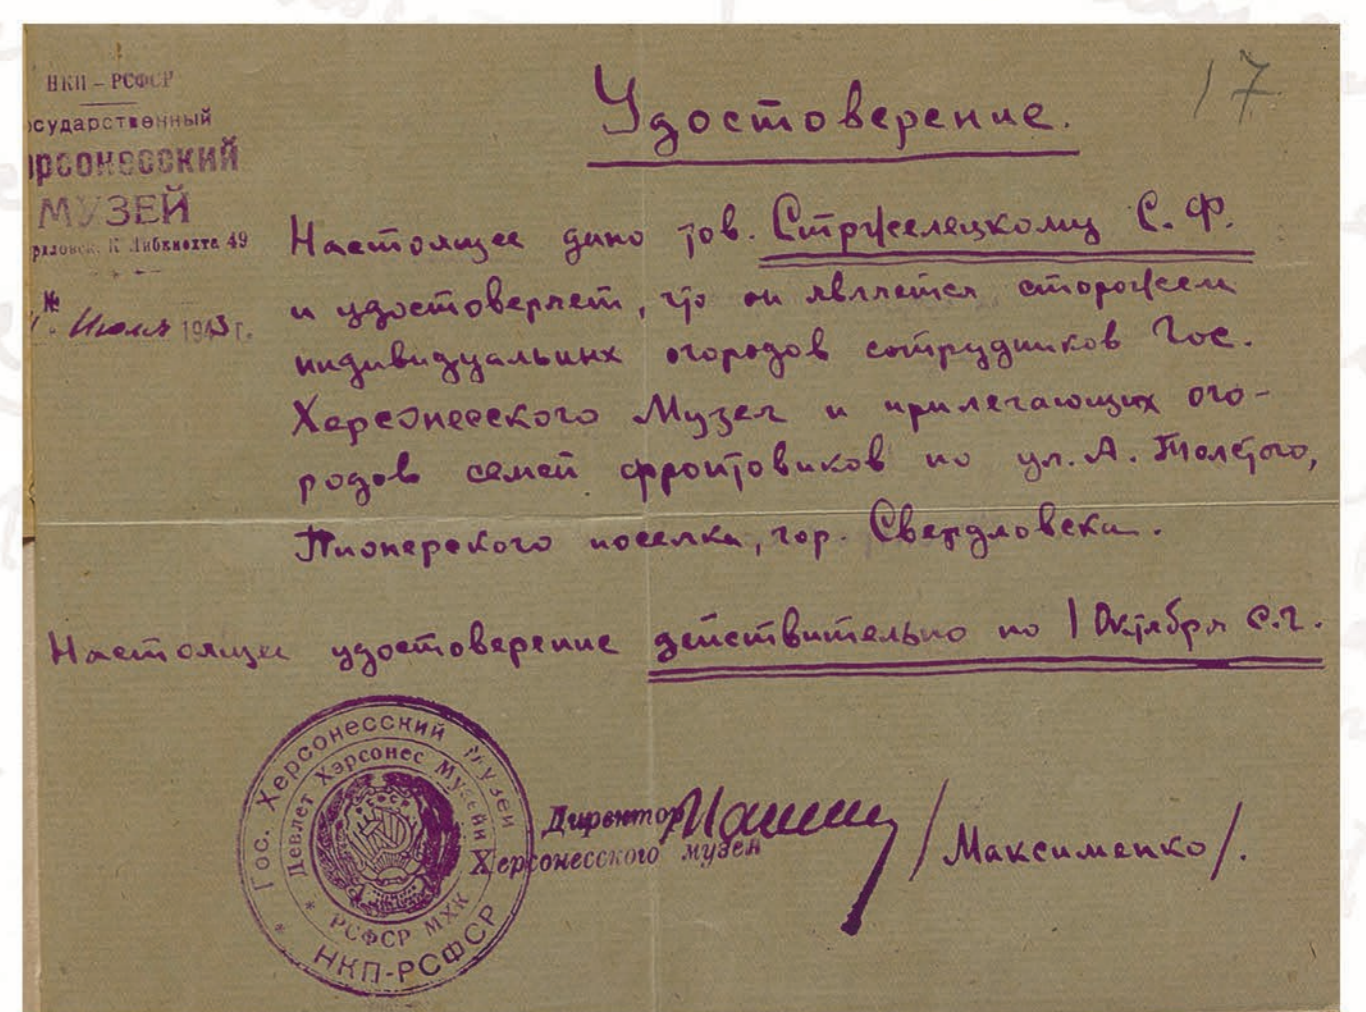 НКП – РСФСР
осударственный
ерсонесский
МУЗЕЙ
рдловск. К Либкнехта 49
№
Июля 1943 г.
17
Удостоверение.
Настоящее дано тов. Стржелецкому С. Ф.
и удостоверяет, что он является сторожем
индивидуальных огородов сотрудников Гос.
Херсонесского Музея и прилегающих ого-
родов семей фронтовиков по ул. А. Толстого,
Пионерского поселка, гор. Свердловска.
Настоящее удостоверение действительно по 1 Октября с.г.
Гос. Херсонесский Музей
НКП-РСФСР
Девлет Хэрсонес Музейи
РСФСР МХК
РСФСР
Директор
Херсонесского музея
/Максименко/.